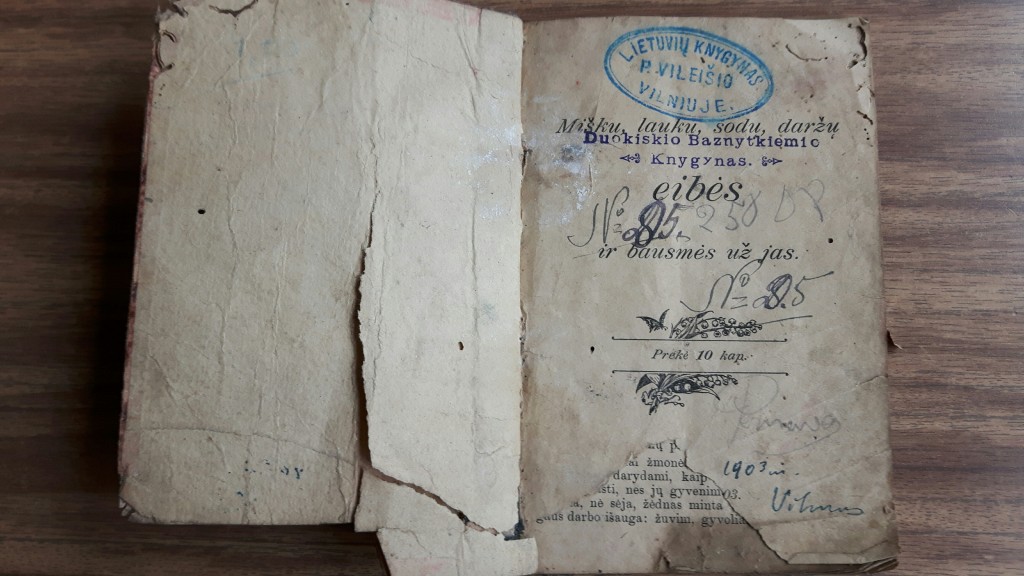 LIETUVIŲ KNYGYNAS
P. VILEIŠIO
VILNIUJE.
Mišku, lauku, sodu, daržų
Duokiskio Baznytkięmio
Knygynas.
eibės
№ 285. 258
ir bausmės už jas.
№ 285
Prekė 10 kap.
žmonė
darydami, kaip
1903 m.
nes jų gyvenim
Vilnius
nė sėja, žėdnas minta
darbo išauga: žuvim, gyvolia